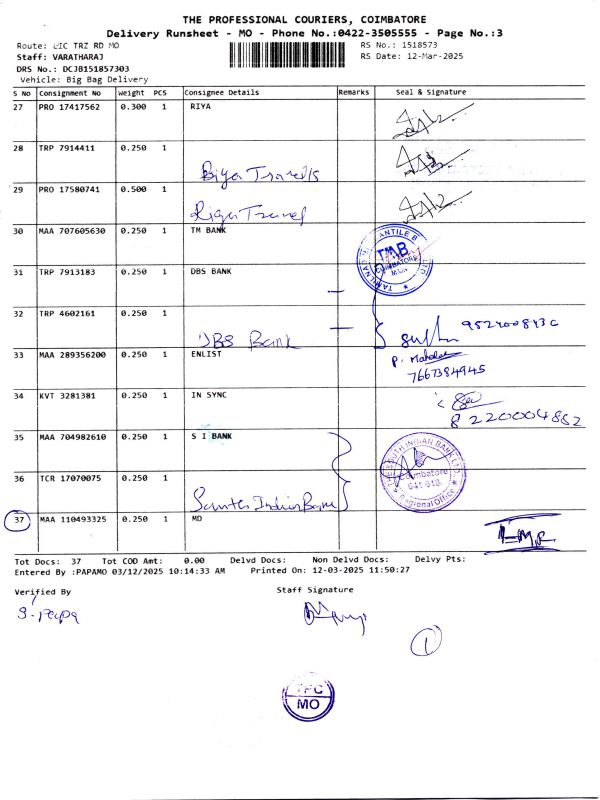 THE PROFESSIONAL COURIERS, COIMBATORE
Delivery Runsheet - MO - Phone No.:0422-3505555 - Page No.:3
Route: LIC TRZ RD MO
RS No.: 1518573
Staff: VARATHARAJ
RS Date: 12-Mar-2025
DRS No.: DCJB151857303
Vehicle: Big Bag Delivery
S No Consignment No Weight PCS Consignee Details Remarks Seal & Signature
27 PRO 17417562 0.300 1 RIYA
28 TRP 7914411 0.250 1
Riya Travels
29 PRO 17580741 0.500 1
Riya Travel
30 MAA 707605630 0.250 1 TM BANK
TMB
COIMBATORE
MAIN
31 TRP 7913183 0.250 1 DBS BANK
32 TRP 4602161 0.250 1
DBS Bank
33 MAA 289356200 0.250 1 ENLIST
7667384945
34 KVT 3281381 0.250 1 IN SYNC
8220004882
35 MAA 704982610 0.250 1 S I BANK
THE SOUTH INDIAN BANK LTD.
Coimbatore
641 018
Regional Office
36 TCR 17070075 0.250 1
37 MAA 110493325 0.250 1 MD
Tot Docs: 37 Tot COD Amt: 0.00 Delvd Docs: Non Delvd Docs: Delvy Pts:
Entered By :PAPAMO 03/12/2025 10:14:33 AM Printed On: 12-03-2025 11:50:27
Verified By
Staff Signature
S. papa
1
TPC
MO